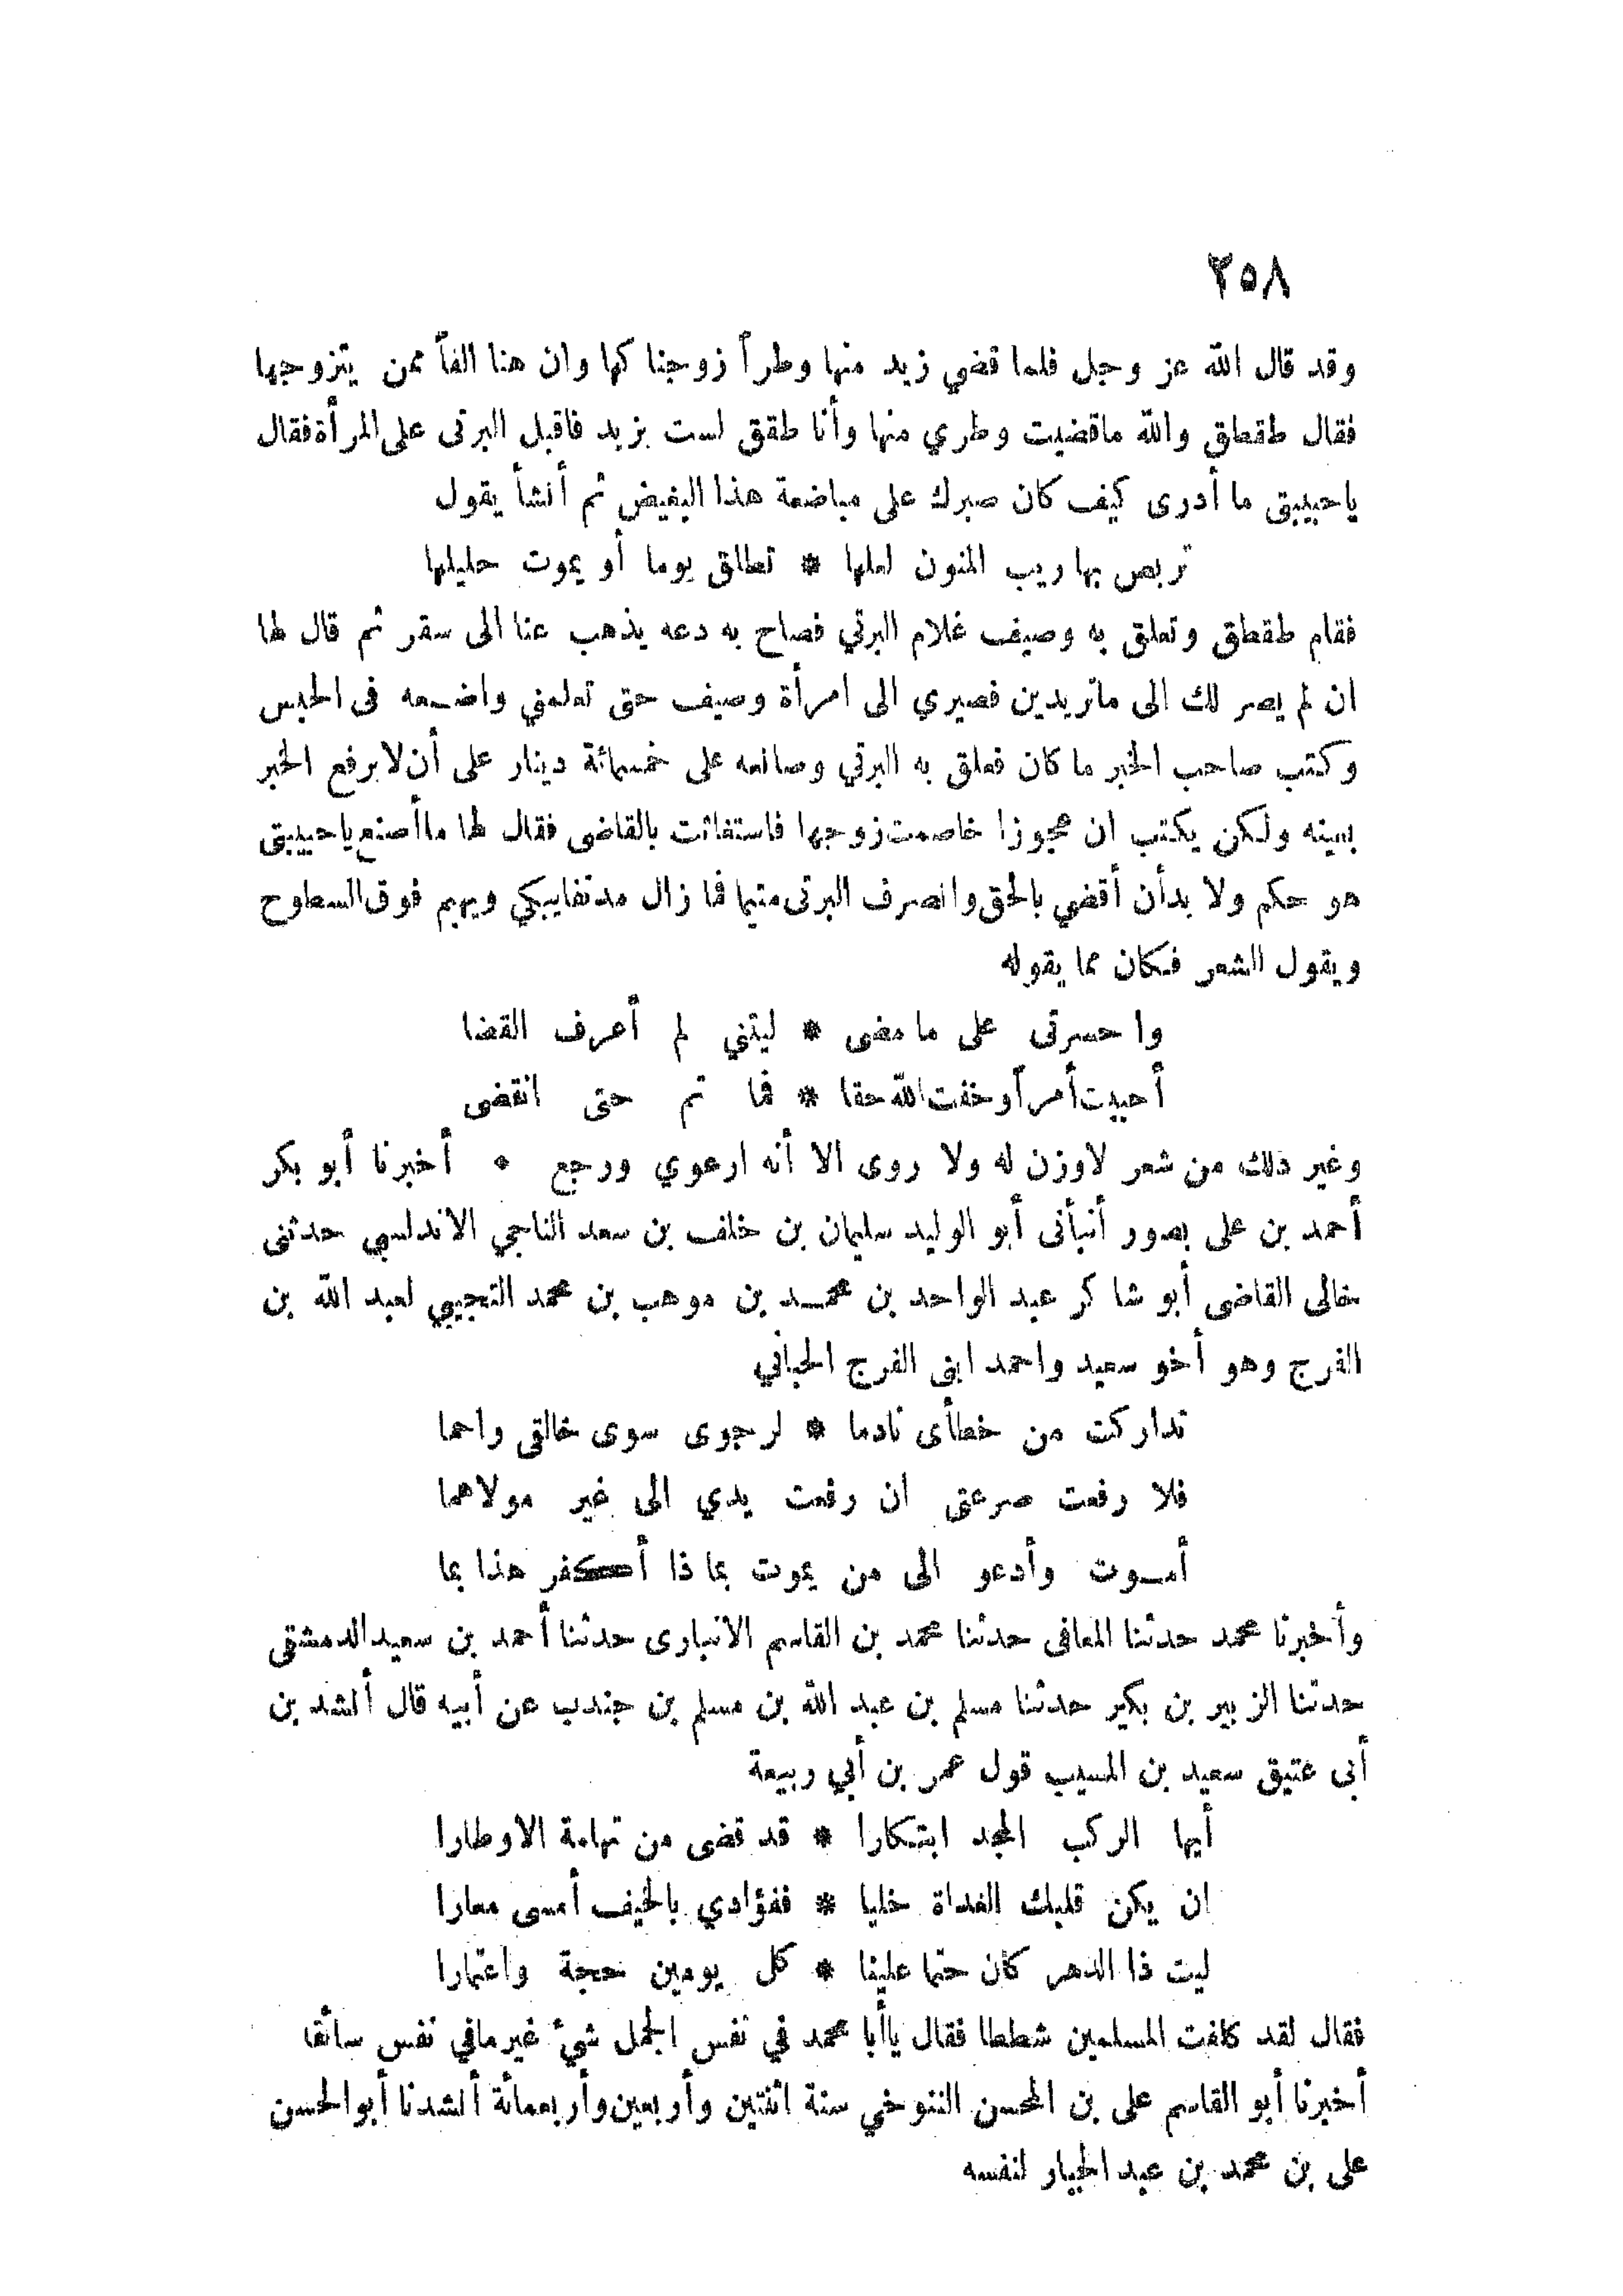 ٢٥٨
وقد قال الله عز وجل فلما قضي زيد منها وطراً زوجنا كها وان هنا الفاً ممن يتزوجها
فقال طقطاق والله ماقضيت وطري منها وأنا طقق لست بزيد فاقبل البرتى على المرأة فقال
ياحبيبتى ما أدرى كيف كان صبرك على مباضعة هذا البغيض ثم أنشأ يقول
تربص بها ريب المنون لعلها * تطلق يوما أو يموت حليلها
فقام طقطاق وتعلق به وصيف غلام البرتي فصاح به دعه يذهب عنا الى سقر ثم قال لها
ان لم يصر لك الى ماتريدين فصيري الى امرأة وصيف حتى تعلمني واضعه فى الحبس
وكتب صاحب الخبر ما كان فعلق به البرتي وصانعه على خمسمائة دينار على أن لا يرفع الخبر
بعينه ولكن يكتب ان عجوزا خاصمت زوجها فاستغاثت بالقاضى فقال لها ما أصنع ياحبيبتى
هو حكم ولا بدأن أقضي بالحق وانصرف البرتى متيما فما زال مدنفا يبكي ويهيم فوق السطوح
ويقول الشعر فكان مما يقوله
وا حسرتى على ما مضى * ليتني لم أعرف القضا
أحببت أمراً وخفت الله حقا * فما تم حتى انقضى
وغير ذلك من شعر لاوزن له ولا روى الا أنه ارعوي ورجع * أخبرنا أبو بكر
أحمد بن على بصور أنبأنى أبو الوليد سليمان بن خلف بن سعد الناجي الاندلسي حدثنى
خالى القاضى أبو شاكر عبد الواحد بن محمد بن موهب بن محمد التجيبي لعبد الله بن
الفرج وهو أخو سعيد واحمد ابنى الفرج الحباني
تداركت من خطأى نادما * لرجوى سوى خالقى راحما
فلا رفعت صرعتى ان رفعت يدي الى غير مولاهما
أموت وأدعو الى من يموت بماذا أكفر هذا بما
وأخبرنا محمد حدثنا المعافى حدثنا محمد بن القاسم الانبارى حدثنا أحمد بن سعيد الدمشقى
حدثنا الزبير بن بكير حدثنا مسلم بن عبد الله بن مسلم بن جندب عن أبيه قال أنشد بن
أبى عتيق سعيد بن المسيب قول عمر بن أبي ربيعة
أيها الركب المجد ابتكارا * قد قضى من تهامة الاوطارا
ان يكن قلبك الغداة خليا * ففؤادي بالخيف أمسى معارا
ليت ذا الدهر كان حتما علينا * كل يومين حجة واعتمارا
فقال لقد كلفت المسلمين شططا فقال ياأبا محمد في نفس الجمل شيء غير مافي نفس سائقا
أخبرنا أبو القاسم على بن المحسن التنوخي سنة اثنتين وأربعين وأربعمائة أنشدنا أبو الحسن
على بن محمد بن عبد الجبار لنفسه